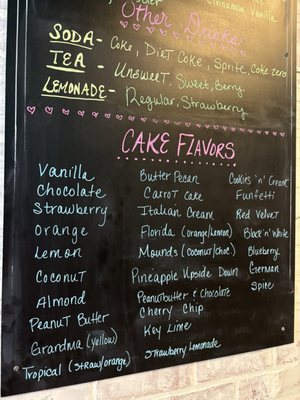 Cinnamon, Vanilla
Other Drinks
SODA - Coke, Diet Coke, Sprite, Coke Zero
TEA - Unsweet, Sweet, Berry
LEMONADE - Regular, Strawberry
CAKE FLAVORS
Vanilla
Chocolate
Strawberry
Orange
Lemon
Coconut
Almond
Peanut Butter
Grandma (yellow)
Tropical (straw/orange)
Butter Pecan
Carrot Cake
Italian Cream
Florida (orange/lemon)
Mounds (coconut/choc)
Pineapple Upside Down
Peanutbutter & Chocolate
Cherry Chip
Key Lime
Strawberry Lemonade
Cookies 'n' Cream
Funfetti
Red Velvet
Black 'n' White
Blueberry
German
Spice